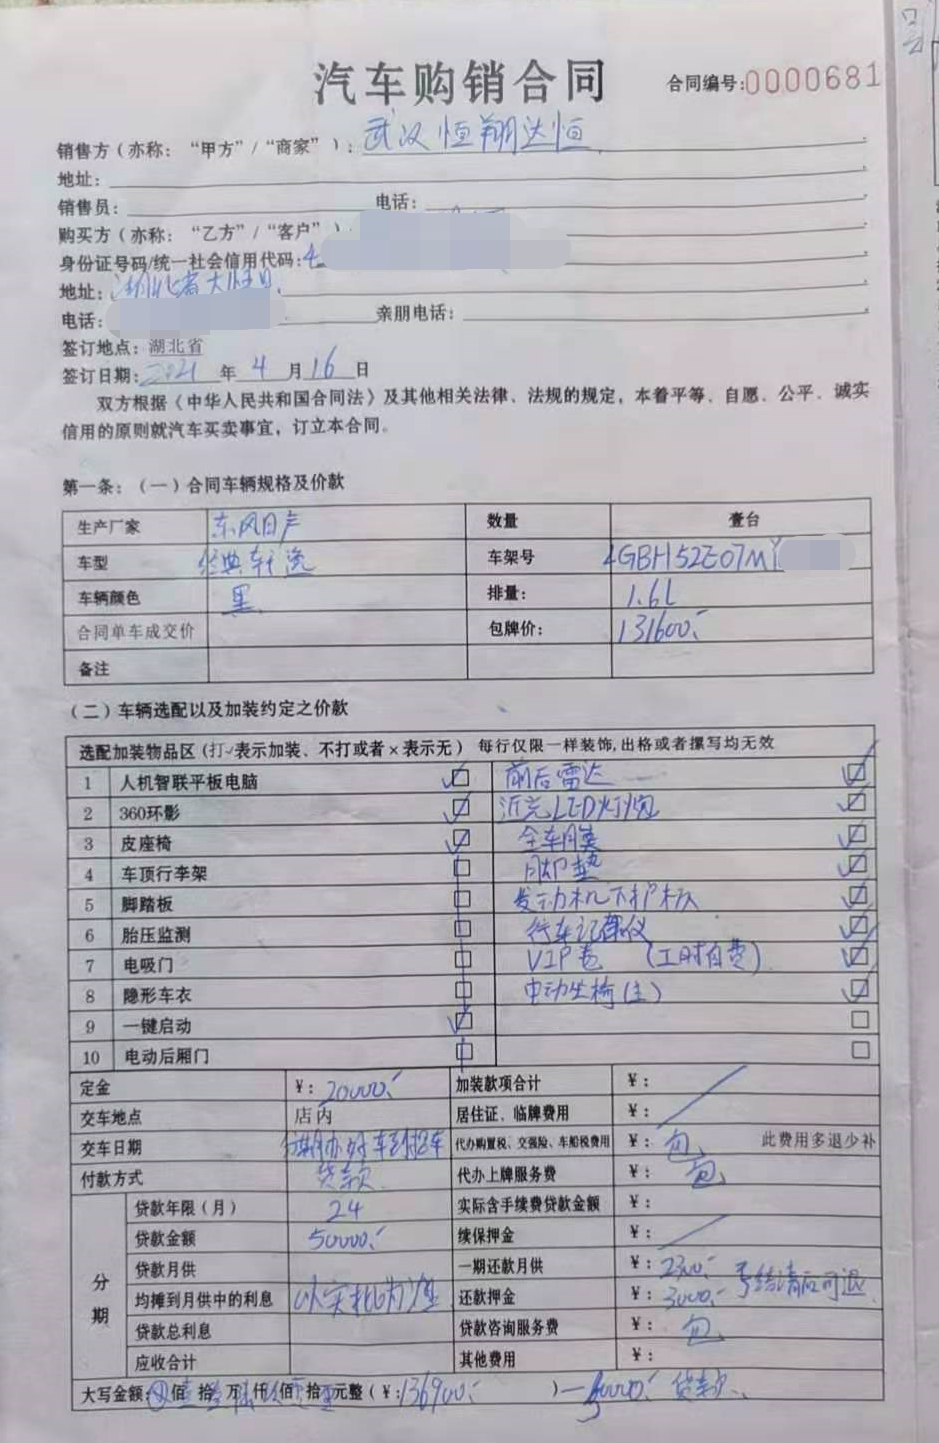 汽车购销合同
合同编号:0000681
销售方(亦称:“甲方”/“商家”):武汉恒翔达恒
地址:
销售员: 电话:
购买方(亦称:“乙方”/“客户”)
身份证号码/统一社会信用代码:4
地址:湖北省大悟县
电话: 亲朋电话:
签订地点:湖北省
签订日期:2021年4月16日
双方根据《中华人民共和国合同法》及其他相关法律、法规的规定,本着平等、自愿、公平、诚实
信用的原则就汽车买卖事宜,订立本合同。
第一条:(一)合同车辆规格及价款
生产厂家 东风日产 数量 壹台
车型 经典轩逸 车架号 LGBH52E07MY
车辆颜色 黑 排量: 1.6L
合同单车成交价 包牌价: 131600
备注
(二)车辆选配以及加装约定之价款
选配加装物品区(打✓表示加装、不打或者×表示无) 每行仅限一样装饰,出格或者撰写均无效
1 人机智联平板电脑 ☑ 前后雷达 ☑
2 360环影 ☑ 近光LED灯炮 ☑
3 皮座椅 ☑ 全车膜 ☑
4 车顶行李架 □ 脚垫 ☑
5 脚踏板 □ 发动机下护板 ☑
6 胎压监测 □ 行车记录仪 ☑
7 电吸门 □ VIP卷 (工时自费) ☑
8 隐形车衣 □ 电动坐椅(主) ☑
9 一键启动 ☑ □
10 电动后厢门 □ □
定金 ¥:20000 加装款项合计 ¥:
交车地点 店内 居住证、临牌费用 ¥:
交车日期 办好车到提车 代办购置税、交强险、车船税费用 ¥:包 此费用多退少补
付款方式 贷款 代办上牌服务费 包
贷款年限(月) 24 实际含手续费贷款金额 ¥:
贷款金额 50000 续保押金 ¥:
分期
贷款月供 一期还款月供 ¥:2300
均摊到月供中的利息 以实批为准 还款押金 ¥:3000 结清后可退
贷款总利息 贷款咨询服务费 ¥:包
应收合计 其他费用 ¥:
大写金额: 佰壹拾 万 仟 佰 拾 元整(¥:136900)— 50000 贷款